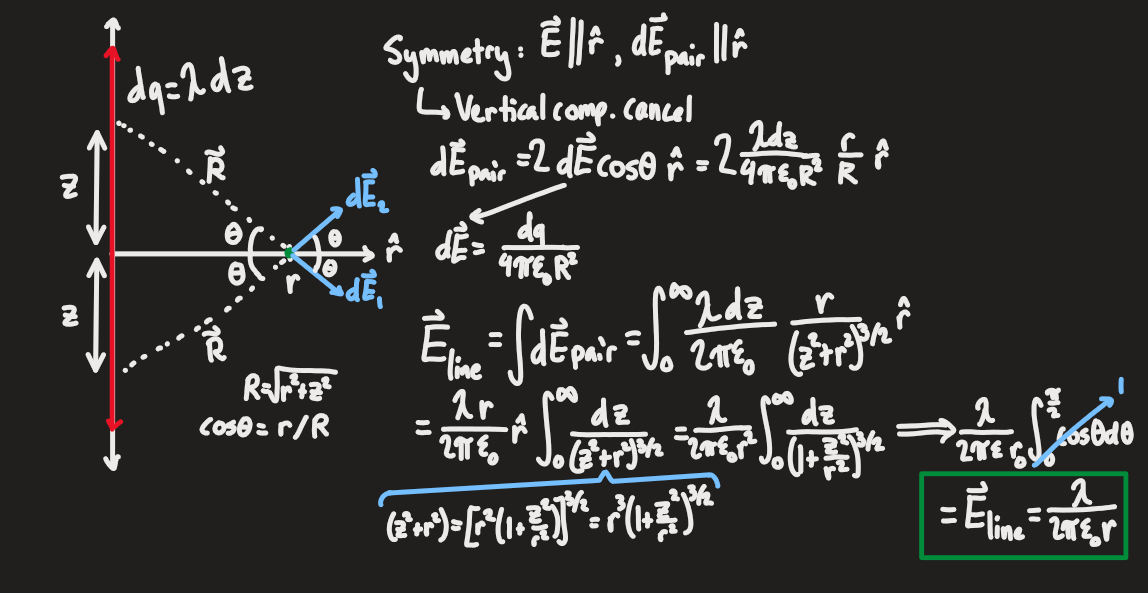 dq=λdz
z
z
R⃗
R⃗
θ
θ
θ
θ
r
r̂
dE⃗₂
dE⃗₁
R=√(r²+z²)
cosθ = r/R
Symmetry: E⃗ ∥ r̂ , dE⃗pair ∥ r̂
↳ Vertical comp. cancel
dE⃗pair = 2 dE⃗ cosθ r̂ = 2 λdz/(4πε₀R²) r/R r̂
dE⃗ = dq/(4πε₀R²)
E⃗line = ∫dE⃗pair = ∫₀^∞ λdz/(2πε₀) r/(z²+r²)^(3/2) r̂
= λr/(2πε₀) r̂ ∫₀^∞ dz/(z²+r²)^(3/2) = λ/(2πε₀r²) ∫₀^∞ dz/(1+z²/r²)^(3/2) ⟹ λ/(2πε₀r) ∫₀^(π/2) cosθdθ 1
(z²+r²) = [r²(1+z²/r²)]^(3/2) = r³(1+z²/r²)^(3/2)
= E⃗line = λ/(2πε₀r)